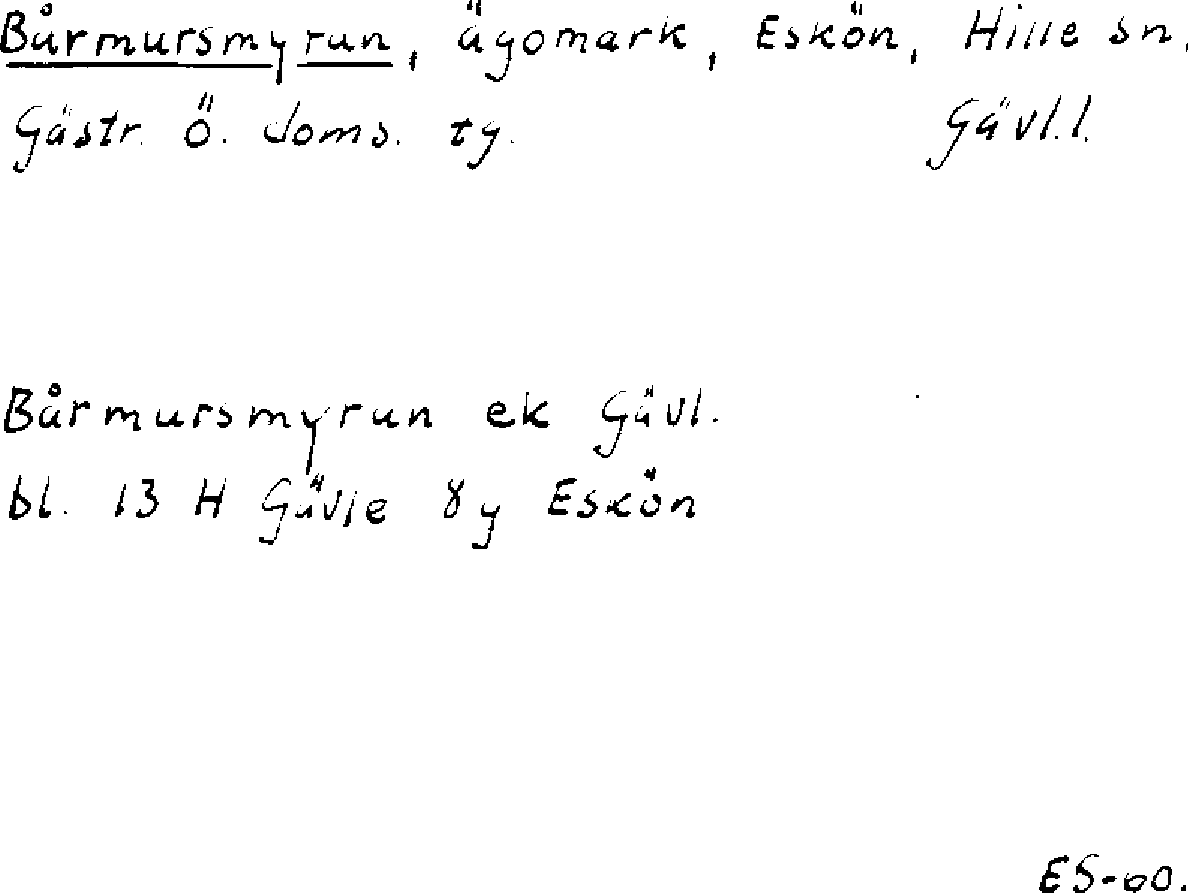 Bårmursmyran, ägomark, Eskön, Hille sn.
Gästr. Ö. doms. tg. Gävl.l.
Bårmursmyran ek Gävl.
bl. 13 H Gävle 8y Eskön
ES-60.